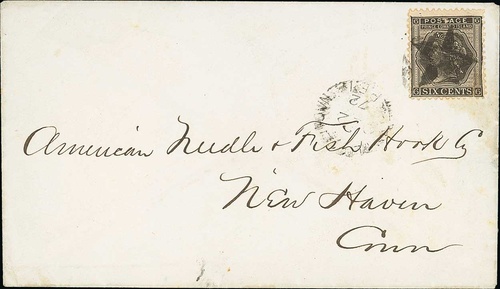 POSTAGE
PRINCE EDWARD ISLAND
SIX CENTS
American Needle & Fish Hook Co
New Haven
Conn